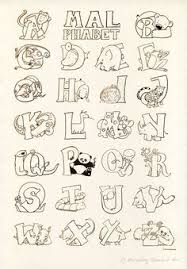 MAL
PHABET
A B
C D E F
G H I J
K L M N
O P Q R
S T U V
W X Y Z